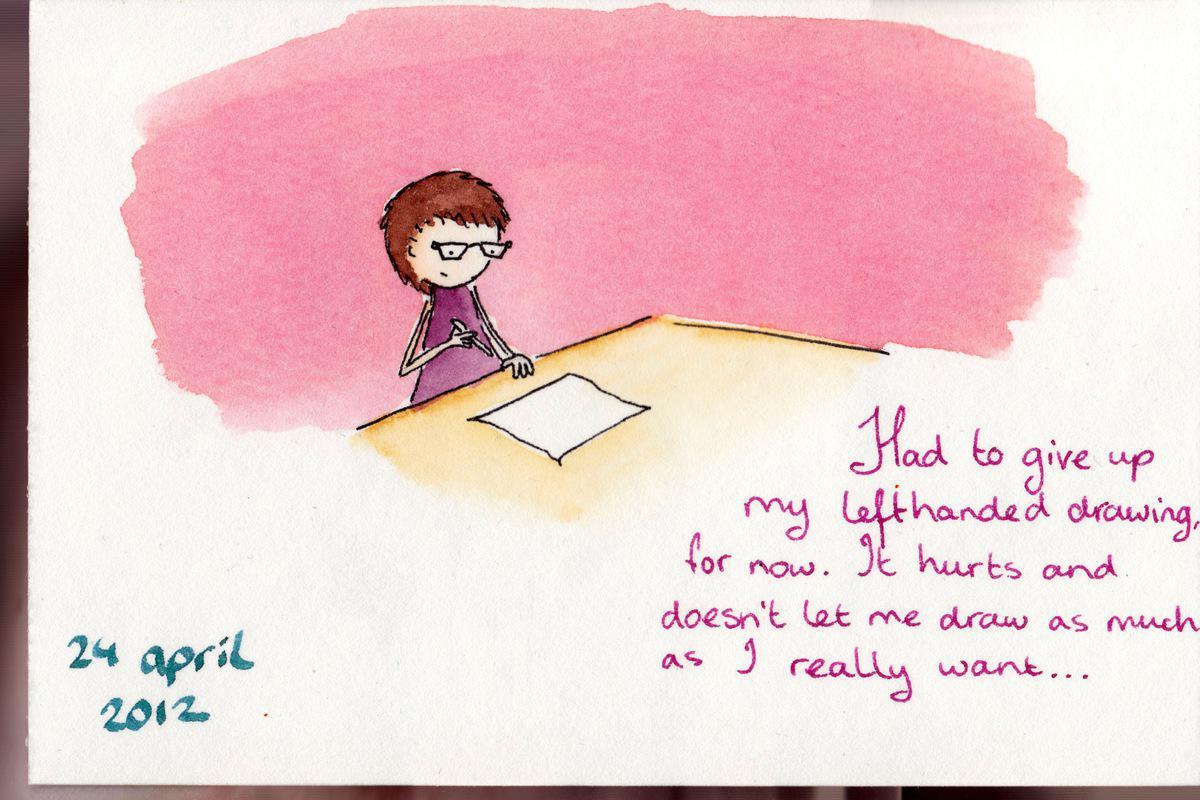 Had to give up
my lefthanded drawing,
for now. It hurts and
doesn't let me draw as much
as I really want...
24 april
2012